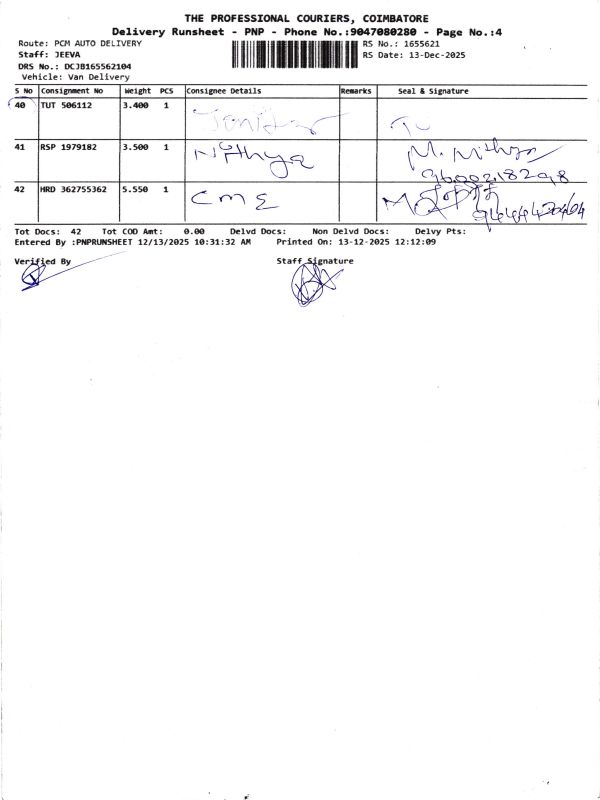 THE PROFESSIONAL COURIERS, COIMBATORE
Delivery Runsheet - PNP - Phone No.:9047080280 - Page No.:4
Route: PCM AUTO DELIVERY RS No.: 1655621
Staff: JEEVA RS Date: 13-Dec-2025
DRS No.: DCJB165562104
Vehicle: Van Delivery
S No Consignment No Weight PCS Consignee Details Remarks Seal & Signature
40 TUT 506112 3.400 1
41 RSP 1979182 3.500 1 Nithya M. Nithya
42 HRD 362755362 5.550 1 CME
Tot Docs: 42 Tot COD Amt: 0.00 Delvd Docs: Non Delvd Docs: Delvy Pts:
Entered By :PNPRUNSHEET 12/13/2025 10:31:32 AM Printed On: 13-12-2025 12:12:09
Verified By Staff Signature